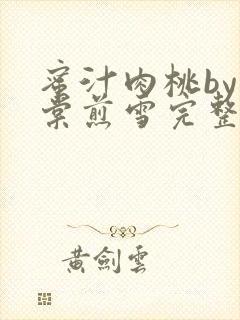 蜜汁肉桃by
棠煎雪完整
黄劍雲